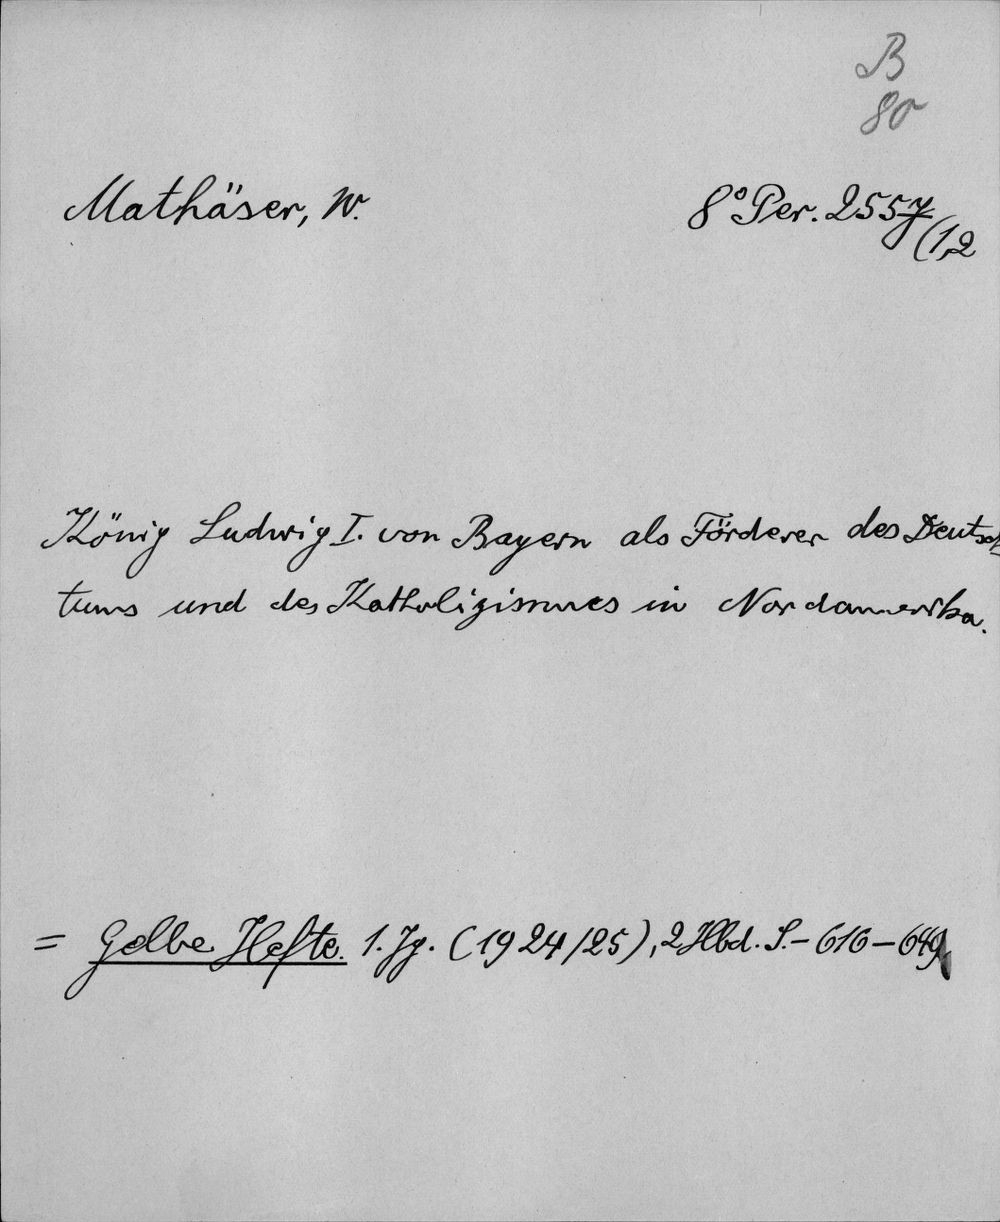 B
80
Mathäser, W. 8° Per. 255y
(1,2
König Ludwig I. von Bayern als Förderer des Deutsch-
tums und des Katholizismus in Nordamerika.
= Gelbe Hefte. 1. Jg. (1924/25), 2 Hbd. S.-616-649